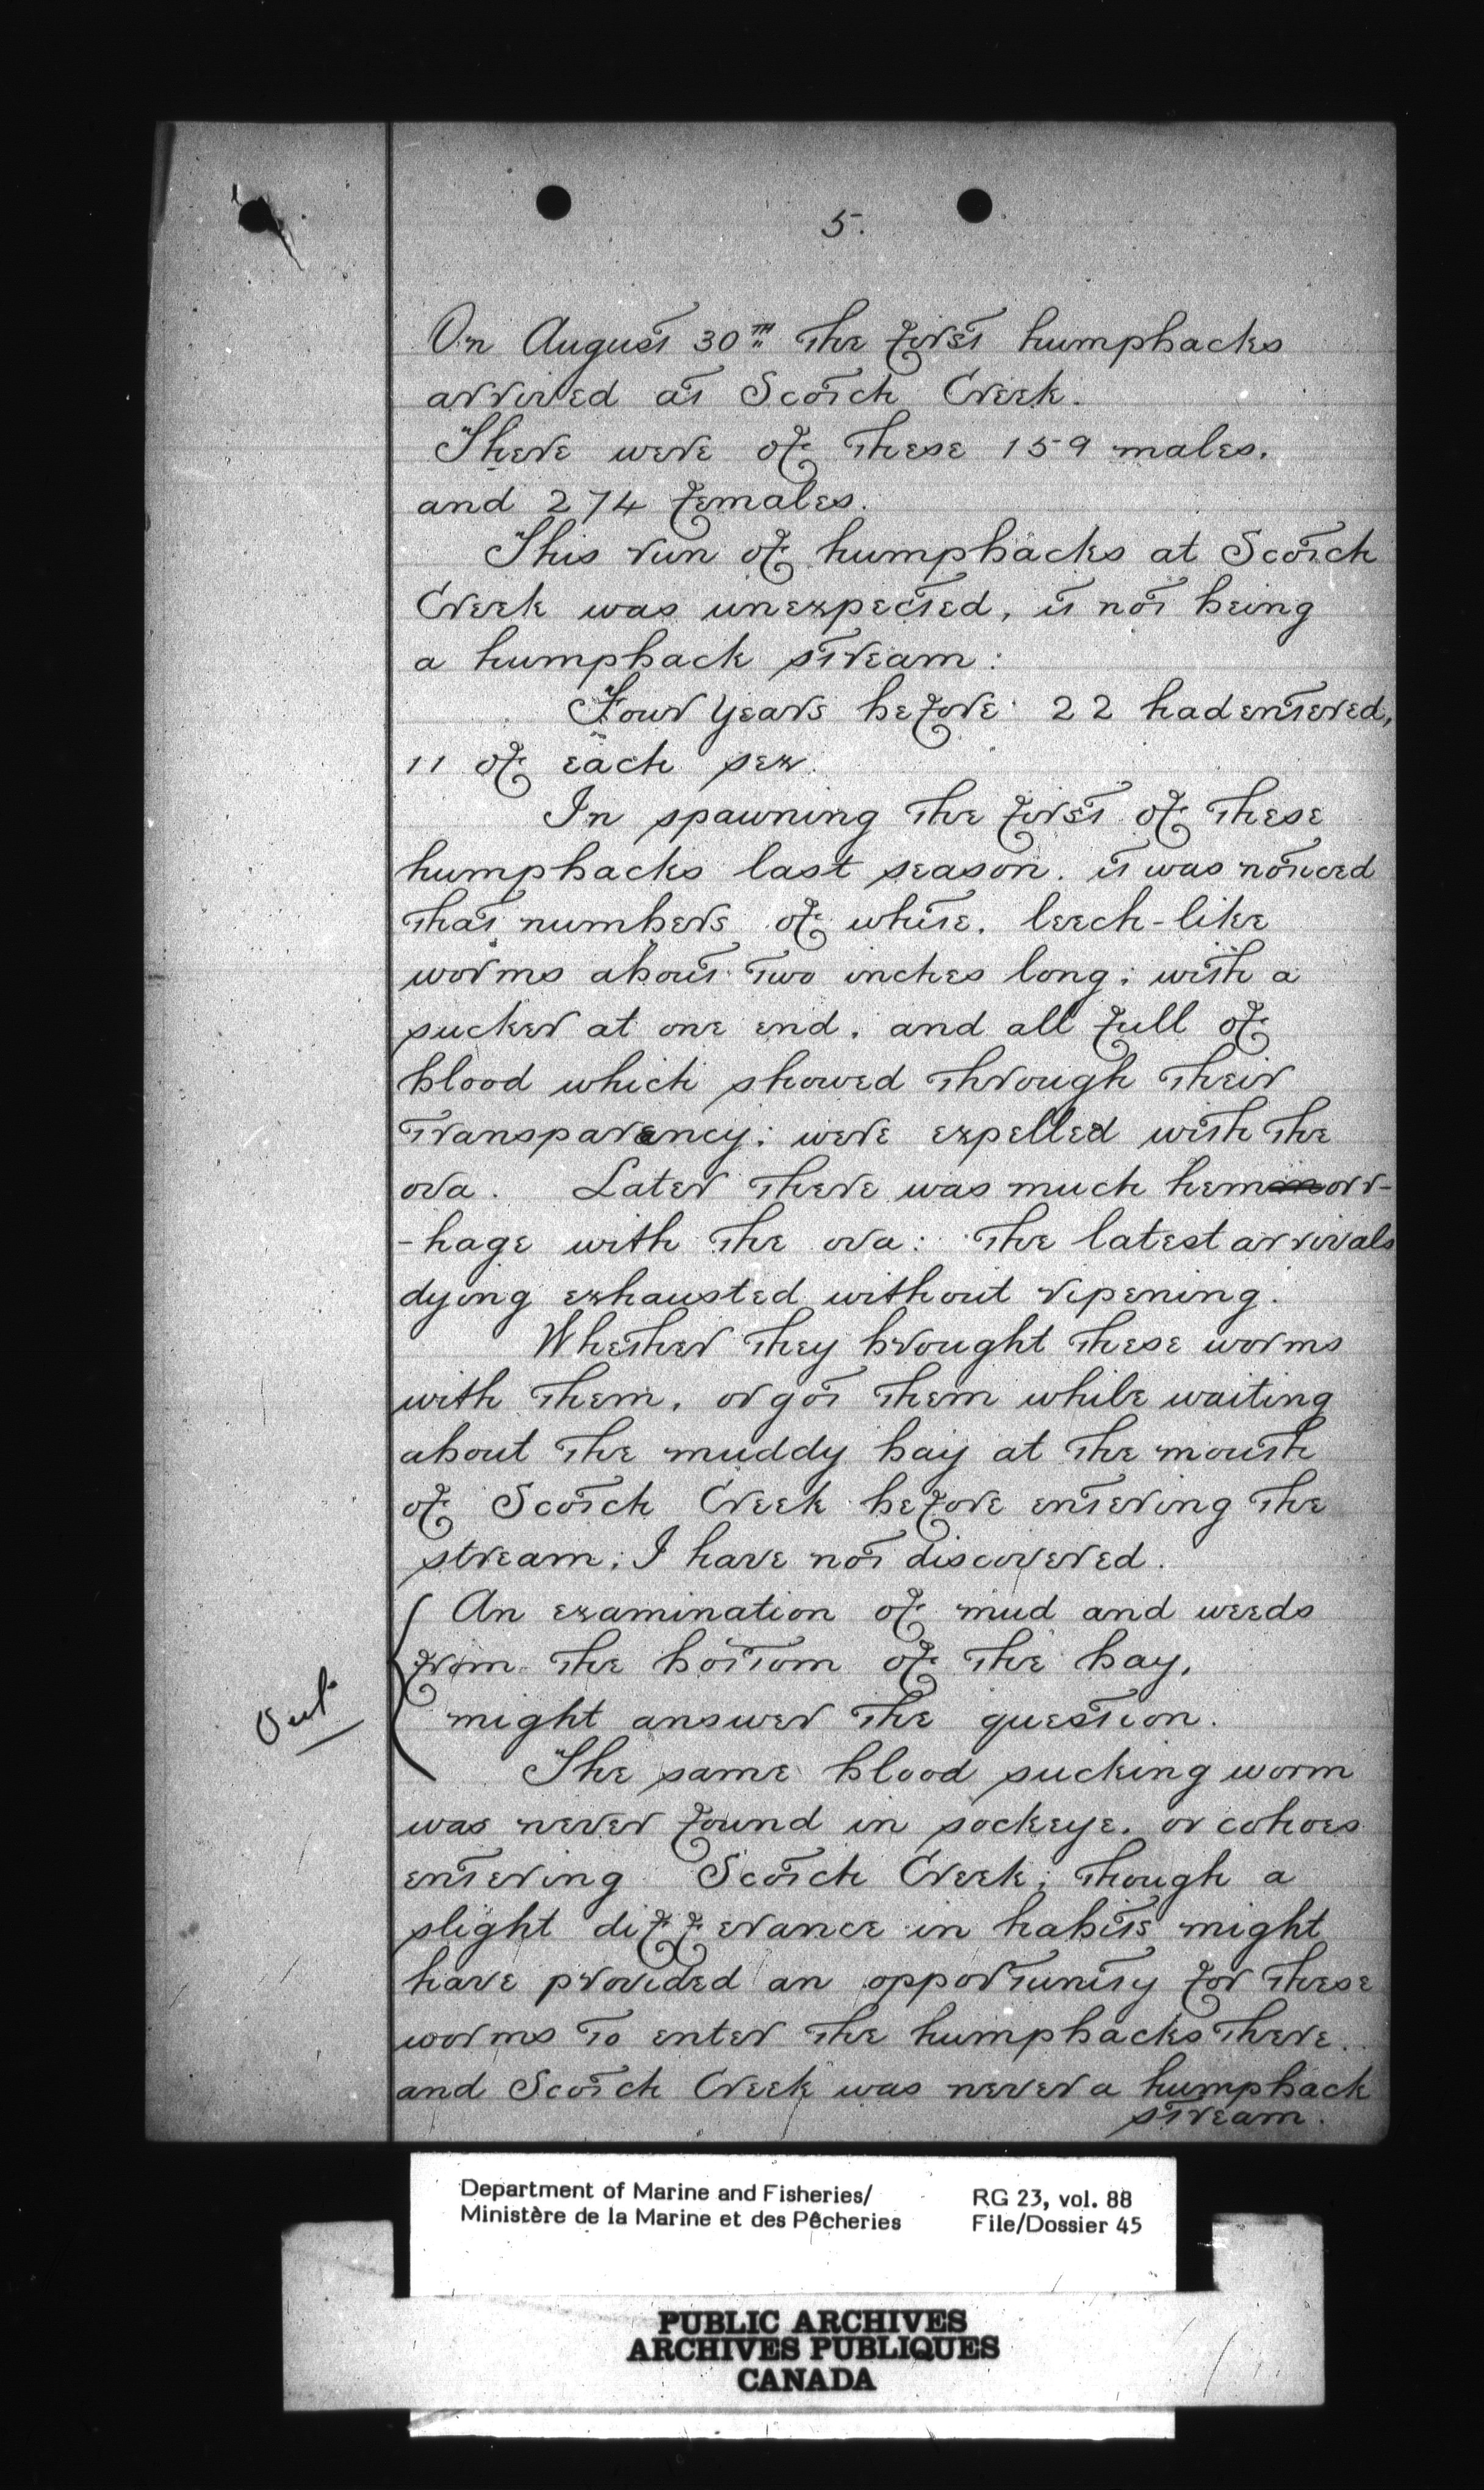 5.
On August 30TH the first humpbacks
arrived at Scotch Creek.
There were of these 159 males.
and 274 females.
This run of humpbacks at Scotch
Creek was unexpected, it not being
a humpback stream:
Four years before 22 had entered,
11 of each sex.
In spawning the first of these
humpbacks last season. it was noticed
that numbers of white. leech-like
worms about two inches long; with a
sucker at one end. and all full of
blood which showed through their
transparency; were expelled with the
ova. Later there was much hemorr-
-hage with the ova: the latest arrivals
dying exhausted without ripening.
Whether they brought these worms
with them. or got them while waiting
about the muddy bay at the mouth
of Scotch Creek before entering the
stream; I have not discovered.
An examination of mud and weeds
from the bottom of the bay,
Out
might answer the question.
The same blood sucking worm
was never found in sockeye. or cohoes
entering Scotch Creek; though a
slight differance in habits might
have provided an opportunity for these
worms to enter the humpbacks there.
and Scotch Creek was never a humpback
stream.
Department of Marine and Fisheries/ RG 23, vol. 88
Ministère de la Marine et des Pêcheries File/Dossier 45
PUBLIC ARCHIVES
ARCHIVES PUBLIQUES
CANADA